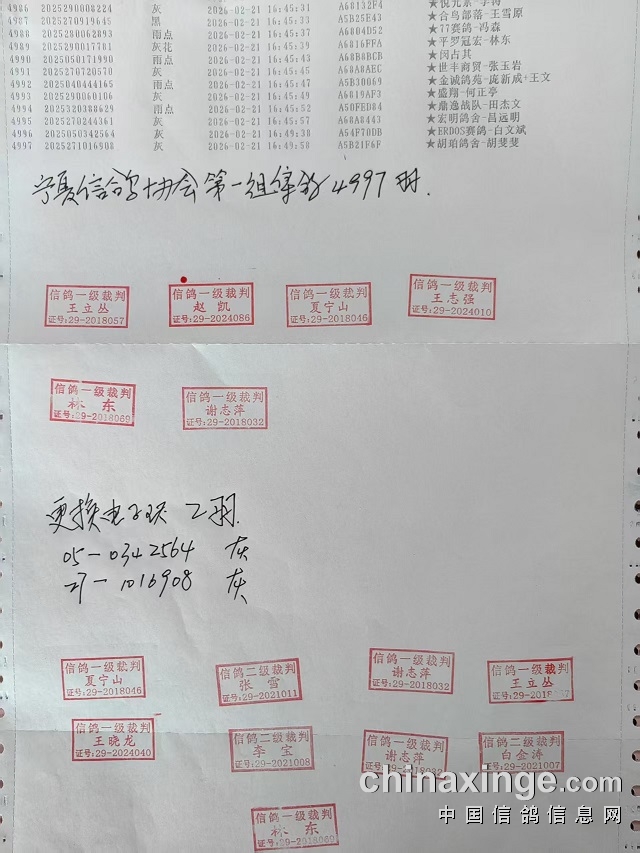 4986 2025290008923 灰 2026-02-21 16:45:31 A68132F4
4987 2025270971949 黑 2026-02-21 16:45:31 A5B25E43 ★合鸟部落-王雪原
4988 2025280062893 雨点 2026-02-21 16:45:37 A6804D52 ★77赛鸽-冯森
4989 2025290017781 灰花 2026-02-21 16:45:39 A6816FFA ★平罗冠宏-林东
4990 2025050171490 雨点 2026-02-21 16:45:41 A68B8BCB ★闵占其
4991 2025270720570 灰 2026-02-21 16:45:47 A68A8AEC ★世丰商贸-张玉岩
4992 2025040445165 雨点 2026-02-21 16:45:51 A5B30069 ★金诚鸽苑-庞新成+王文
4993 2025290060106 灰 2026-02-21 16:45:54 A6819AF3 ★盛翔-何正亭
4994 2025320388629 雨点 2026-02-21 16:45:52 A50FED84 ★鼎逸战队-田杰文
4995 2025270244361 灰 2026-02-21 16:45:57 A68A8443 ★宏明鸽舍-吕远明
4996 2025050342564 灰 2026-02-21 16:49:38 A54F70DB ★ERDOS赛鸽-白文斌
4997 2025271016908 灰 2026-02-21 16:49:58 A5B21F6F ★胡珀鸽舍-胡斐斐
宁夏信鸽协会第一组集鸽4997羽.
信鸽一级裁判 信鸽一级裁判 信鸽一级裁判 信鸽一级裁判
王立丛 赵凯 夏宁山 王志强
证号:29-2018057 证号:29-2024086 证号:29-2018046 证号:29-2024010
信鸽一级裁判 信鸽一级裁判
林东 谢志萍
证号:29-2018069 证号:29-2018032
更换电子环 2羽.
05-0342564 灰
27-1016908 灰
信鸽一级裁判 信鸽二级裁判 信鸽一级裁判 信鸽一级裁判
夏宁山 张雪 谢志萍 王立丛
证号:29-2018046 证号:29-2021011 证号:29-2018032 证号:29-2018057
信鸽一级裁判 信鸽二级裁判 信鸽一级裁判 信鸽二级裁判
王晓龙 李宝 谢志萍 白金涛
证号:29-2024040 证号:29-2021008 证号:29-2018032 证号:29-2021007
chinaxinge.com
中国信鸽信息网
信鸽一级裁判
林东
证号:29-2018069